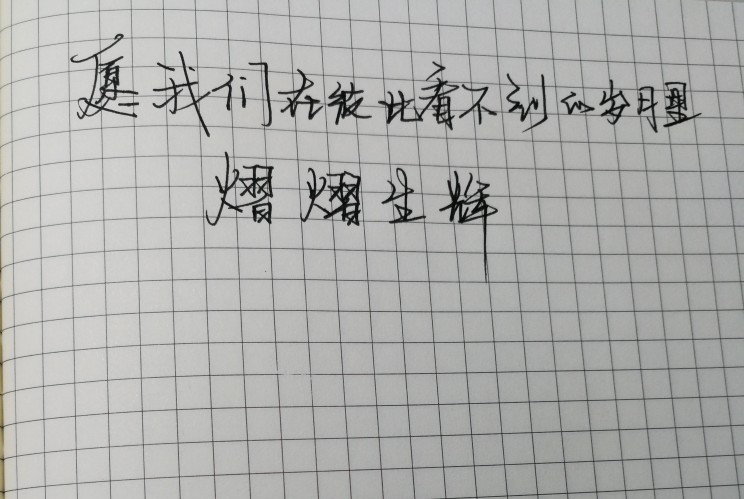 愿我们在彼此看不到的岁月里
熠熠生辉